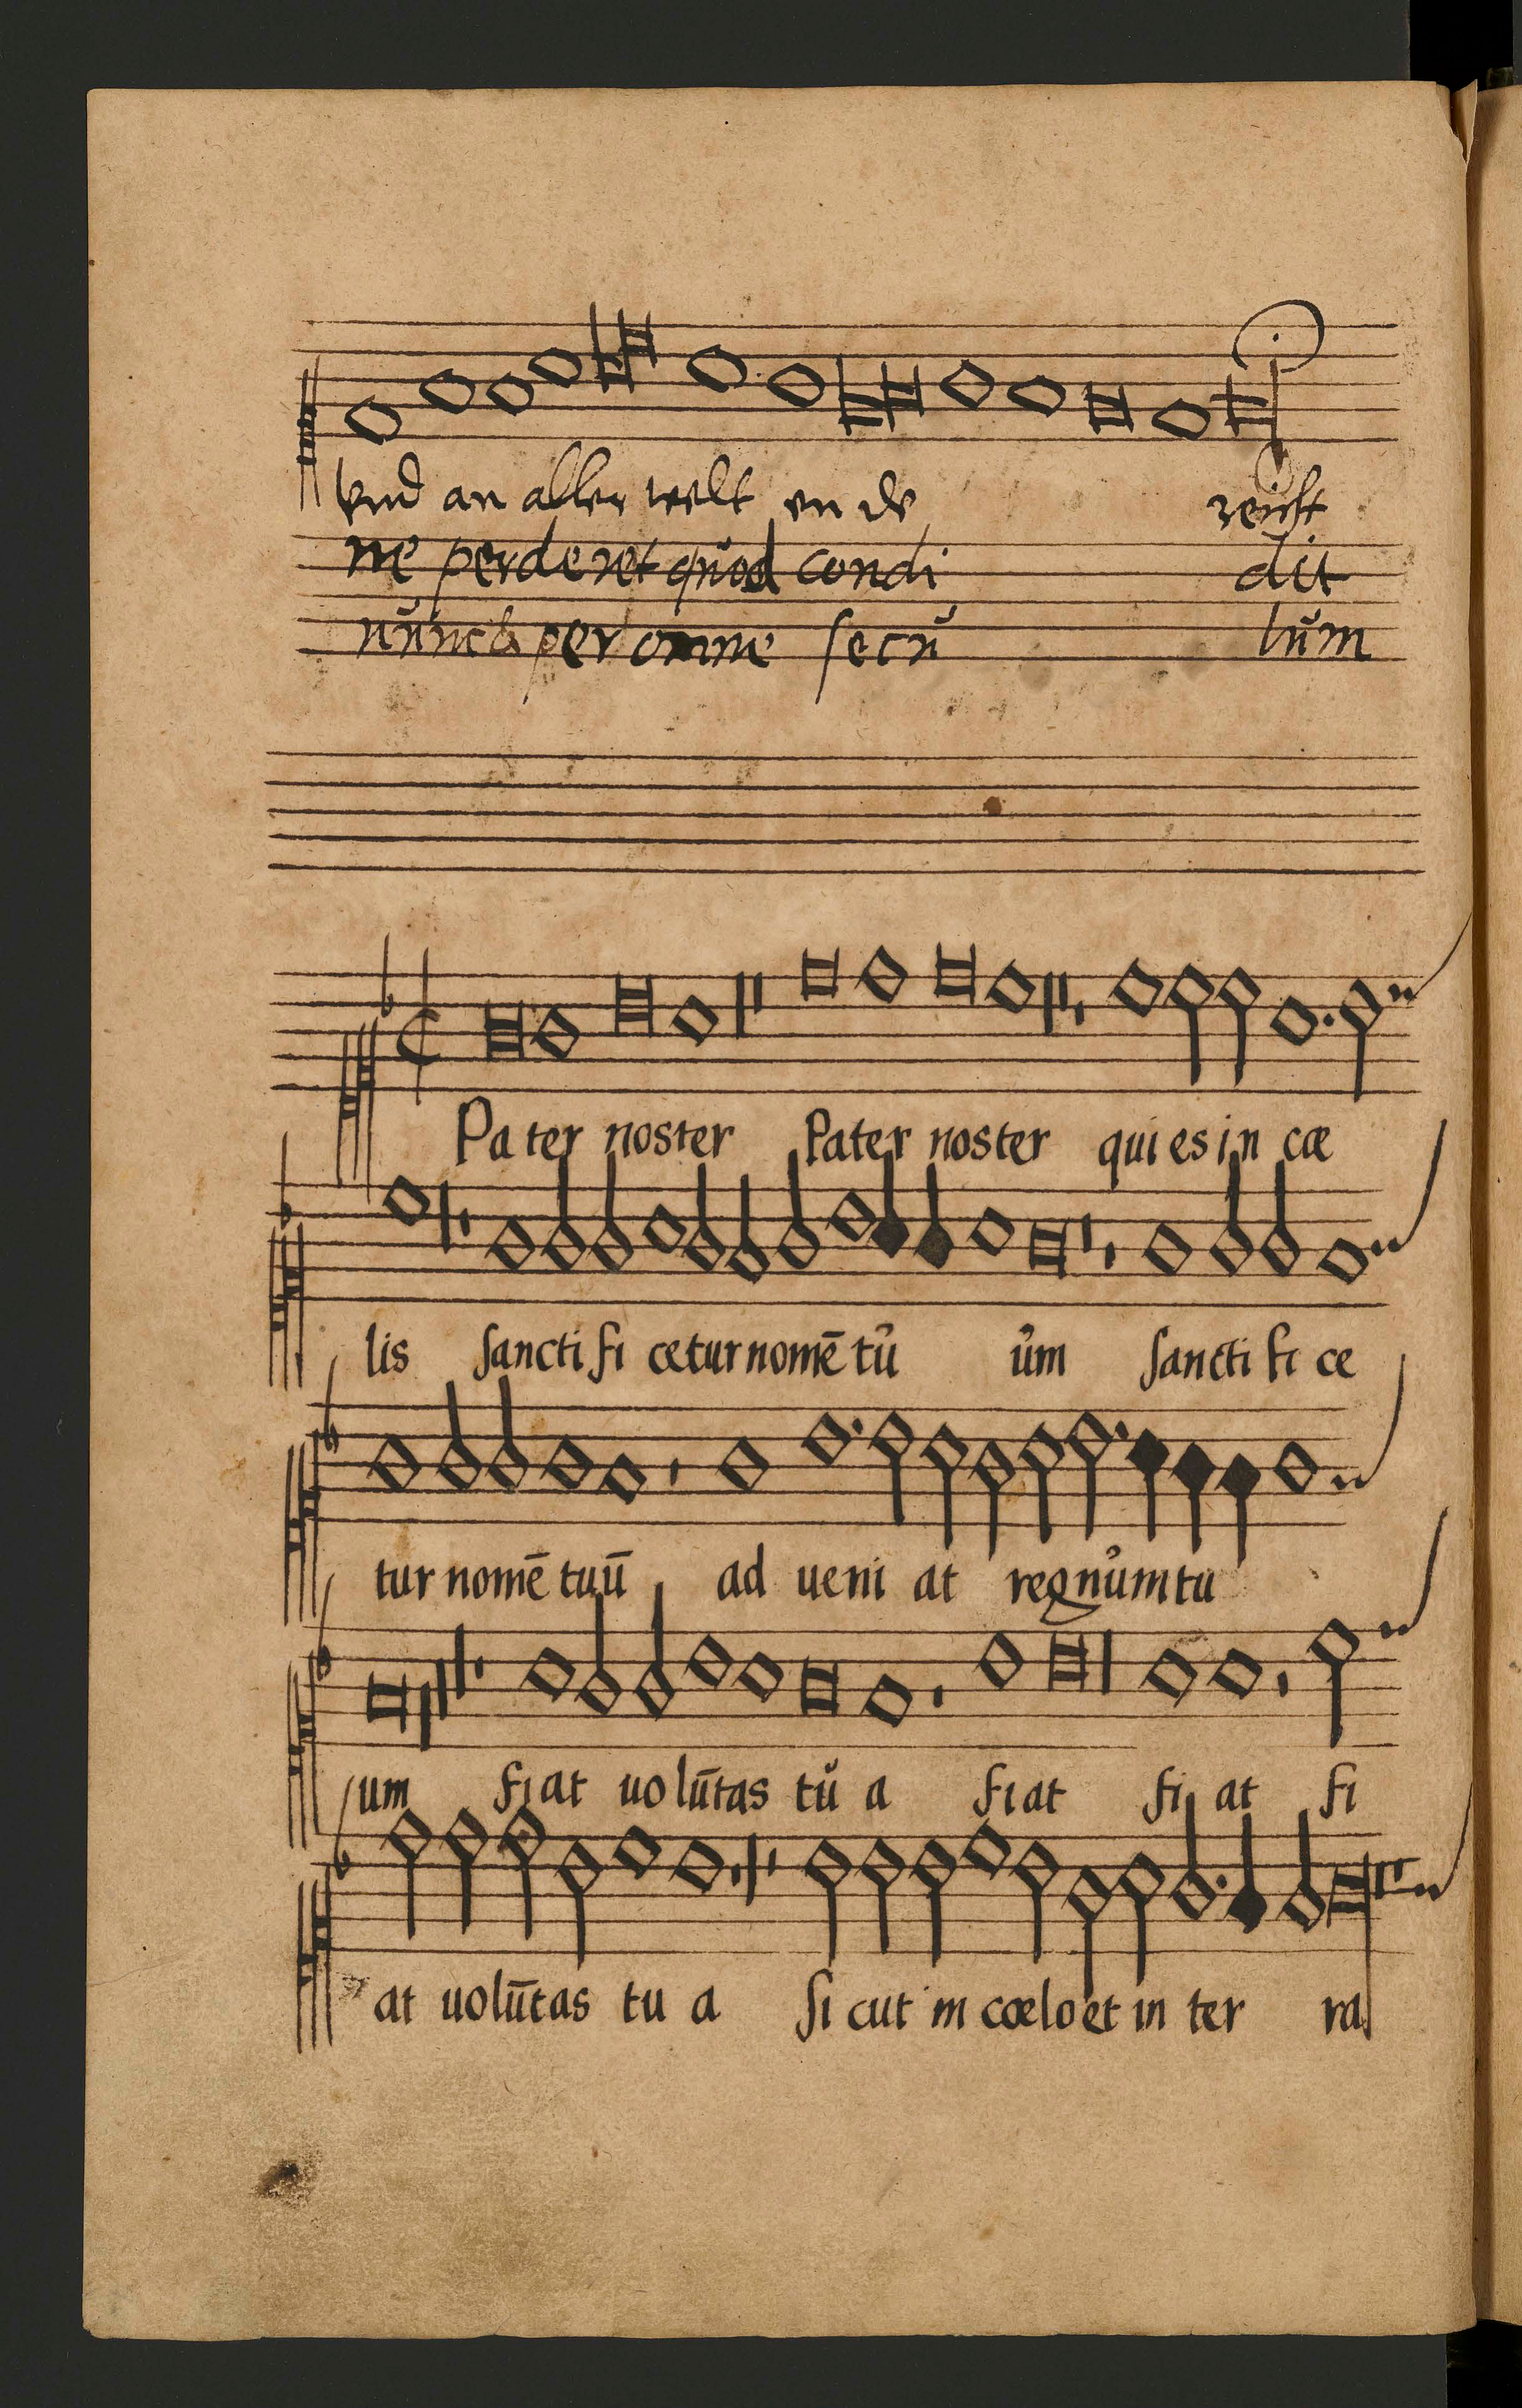 vnd an aller welt en de reichst
ne perderet quod condi dit
nunc & per omne secu lum
Pa ter noster Pater noster qui es in cæ
lis sancti fi cetur nomē tŭ ŭm sancti fi ce
tur nomē tuū ad ueni at regnŭm tu
um fi at uo lūtas tŭ a fi at fi at fi
at uolūtas tu a si cut in cœlo et in ter ra